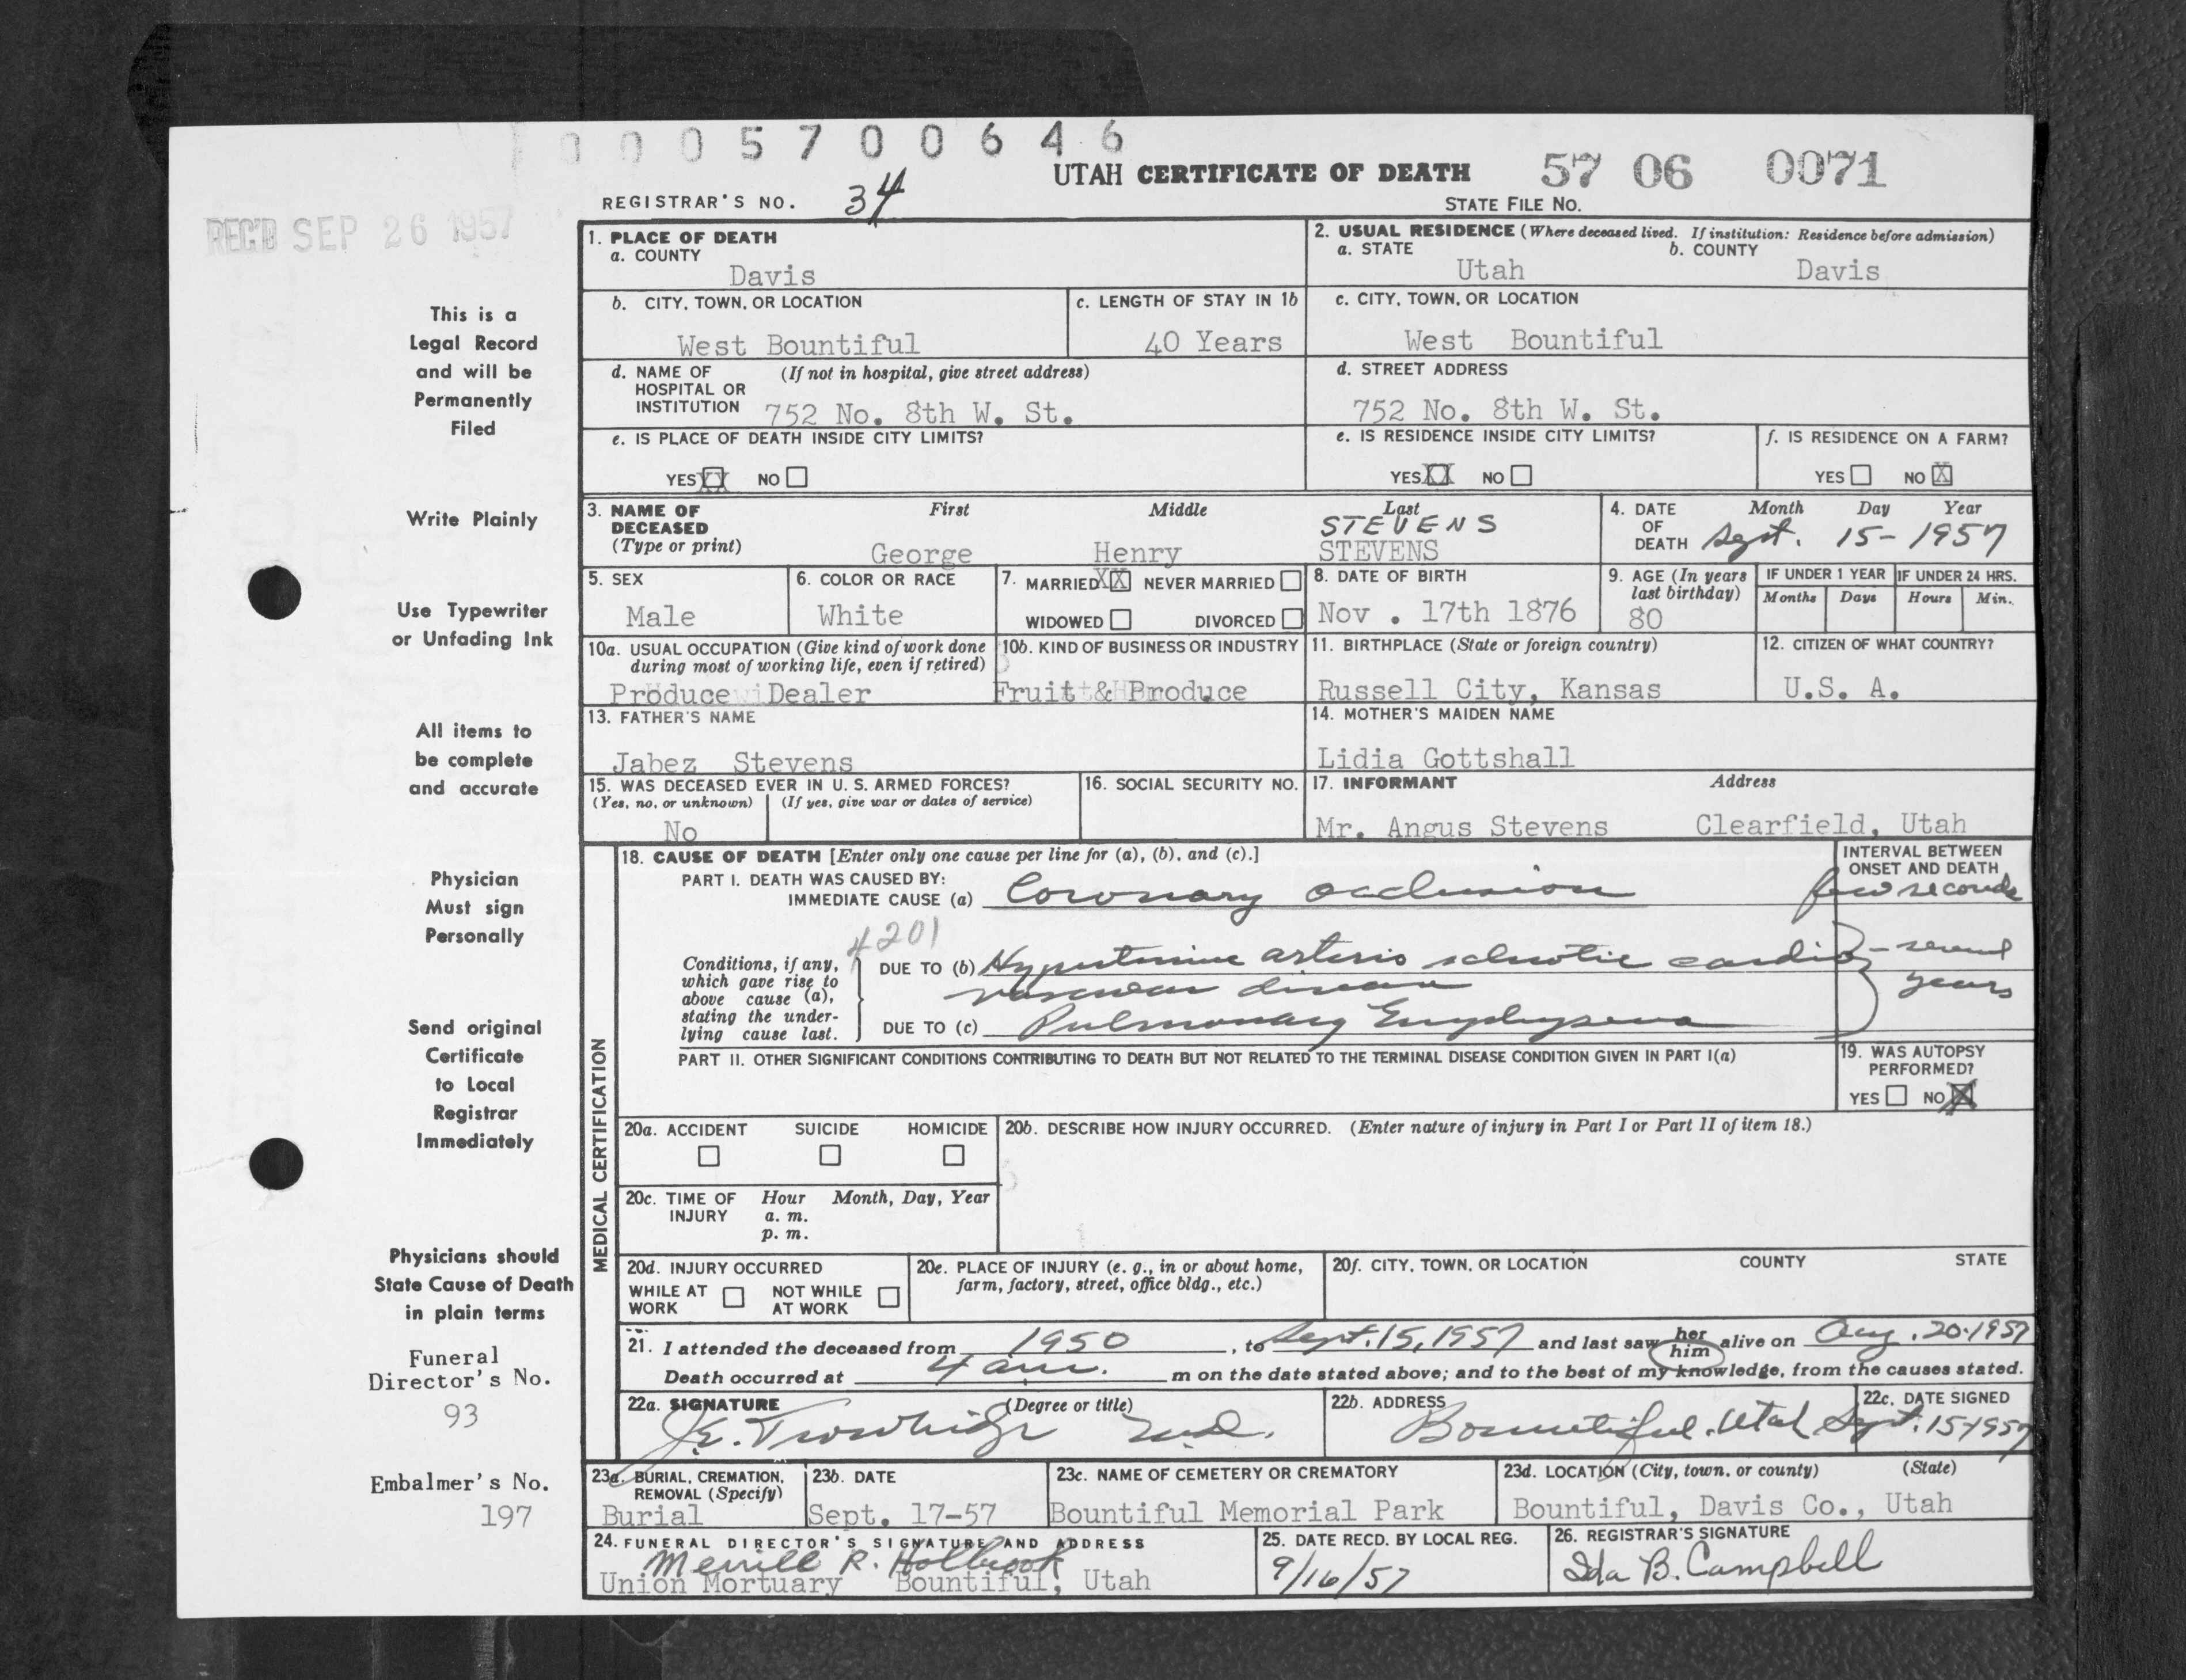 0 0 0 5 7 0 0 6 4 6
UTAH CERTIFICATE OF DEATH 57 06 0071
REGISTRAR'S NO. 34 STATE FILE NO.
REC'D SEP 26 1957
1. PLACE OF DEATH
a. COUNTY
Davis
2. USUAL RESIDENCE (Where deceased lived. If institution: Residence before admission)
a. STATE b. COUNTY
Utah Davis
b. CITY, TOWN, OR LOCATION
West Bountiful
c. LENGTH OF STAY IN 1b
40 Years
c. CITY, TOWN, OR LOCATION
West Bountiful
d. NAME OF (If not in hospital, give street address)
HOSPITAL OR
INSTITUTION 752 No. 8th W. St.
d. STREET ADDRESS
752 No. 8th W. St.
e. IS PLACE OF DEATH INSIDE CITY LIMITS?
YES XX NO
e. IS RESIDENCE INSIDE CITY LIMITS?
YES XX NO
f. IS RESIDENCE ON A FARM?
YES NO X
3. NAME OF First Middle Last
DECEASED STEVENS
(Type or print) George Henry STEVENS
4. DATE Month Day Year
OF
DEATH Sept. 15-1957
5. SEX
Male
6. COLOR OR RACE
White
7. MARRIED XX NEVER MARRIED
WIDOWED DIVORCED
8. DATE OF BIRTH
Nov . 17th 1876
9. AGE (In years
last birthday)
80
IF UNDER 1 YEAR IF UNDER 24 HRS.
Months Days Hours Min.
10a. USUAL OCCUPATION (Give kind of work done
during most of working life, even if retired)
Produce Dealer
10b. KIND OF BUSINESS OR INDUSTRY
Fruit & Produce
11. BIRTHPLACE (State or foreign country)
Russell City, Kansas
12. CITIZEN OF WHAT COUNTRY?
U.S. A.
13. FATHER'S NAME
Jabez Stevens
14. MOTHER'S MAIDEN NAME
Lidia Gottshall
15. WAS DECEASED EVER IN U. S. ARMED FORCES?
(Yes, no, or unknown) (If yes, give war or dates of service)
No
16. SOCIAL SECURITY NO.
17. INFORMANT Address
Mr. Angus Stevens Clearfield, Utah
MEDICAL CERTIFICATION
18. CAUSE OF DEATH [Enter only one cause per line for (a), (b), and (c).]
PART I. DEATH WAS CAUSED BY:
IMMEDIATE CAUSE (a) Coronary occlusion
INTERVAL BETWEEN
ONSET AND DEATH
few seconds
4201
Conditions, if any,
which gave rise to
above cause (a),
stating the under-
lying cause last.
DUE TO (b) Hypertensive arterio sclerotic cardio
vascular disease
- several
years
DUE TO (c) Pulmonary Emphysema
PART II. OTHER SIGNIFICANT CONDITIONS CONTRIBUTING TO DEATH BUT NOT RELATED TO THE TERMINAL DISEASE CONDITION GIVEN IN PART I(a)
19. WAS AUTOPSY
PERFORMED?
YES NO X
20a. ACCIDENT SUICIDE HOMICIDE
20b. DESCRIBE HOW INJURY OCCURRED. (Enter nature of injury in Part I or Part II of item 18.)
20c. TIME OF Hour Month, Day, Year
INJURY a. m.
p. m.
20d. INJURY OCCURRED
WHILE AT NOT WHILE
WORK AT WORK
20e. PLACE OF INJURY (e. g., in or about home,
farm, factory, street, office bldg., etc.)
20f. CITY, TOWN, OR LOCATION COUNTY STATE
21. I attended the deceased from 1950, to Sept. 15, 1957 and last saw her him alive on Aug. 20-1957
Death occurred at 4 am. m on the date stated above; and to the best of my knowledge, from the causes stated.
22a. SIGNATURE (Degree or title)
J.E. Trowbridge M.D.
22b. ADDRESS
Bountiful, Utah
22c. DATE SIGNED
Sept. 15-1957
23a. BURIAL, CREMATION,
REMOVAL (Specify)
Burial
23b. DATE
Sept. 17-57
23c. NAME OF CEMETERY OR CREMATORY
Bountiful Memorial Park
23d. LOCATION (City, town, or county) (State)
Bountiful, Davis Co., Utah
24. FUNERAL DIRECTOR'S SIGNATURE AND ADDRESS
Merrill R. Holbrook
Union Mortuary Bountiful, Utah
25. DATE RECD. BY LOCAL REG.
9/16/57
26. REGISTRAR'S SIGNATURE
Ida B. Campbell
This is a
Legal Record
and will be
Permanently
Filed
Write Plainly
Use Typewriter
or Unfading Ink
All items to
be complete
and accurate
Physician
Must sign
Personally
Send original
Certificate
to Local
Registrar
Immediately
Physicians should
State Cause of Death
in plain terms
Funeral
Director's No.
93
Embalmer's No.
197